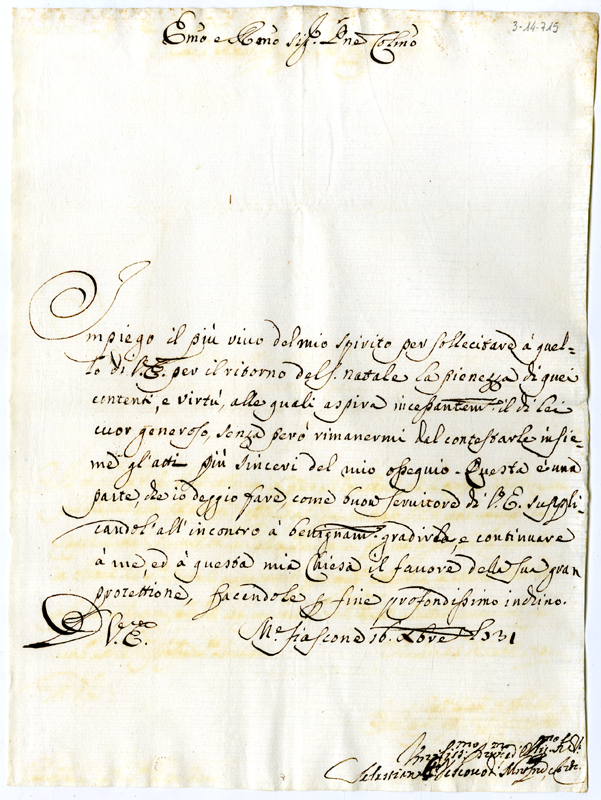 3-14-715
Emo e Rmo Sig.r Pne Colmo
Impiego il più vivo del mio spirito per sollecitare à quel=
lo di V.E. per il ritorno del S. Natale la pienezza di quei
contenti, e virtù, alle quali aspira incessantem.te il di lei
cuor generoso, senza però rimanermi dal contestarle insie
me gl'atti più sinceri del mio ossequio. Questa è una
parte, che io deggio fare come buon servitore di V.E. suppli
candol' all'incontro à benignam.te gradirla, e continuare
à me, ed à questa mia Chiesa il favore della sua gran
protettione, facendole p fine profondissimo inchino.
D V. E. M.e fiascone 16. Xbre 1731
Vescovo di